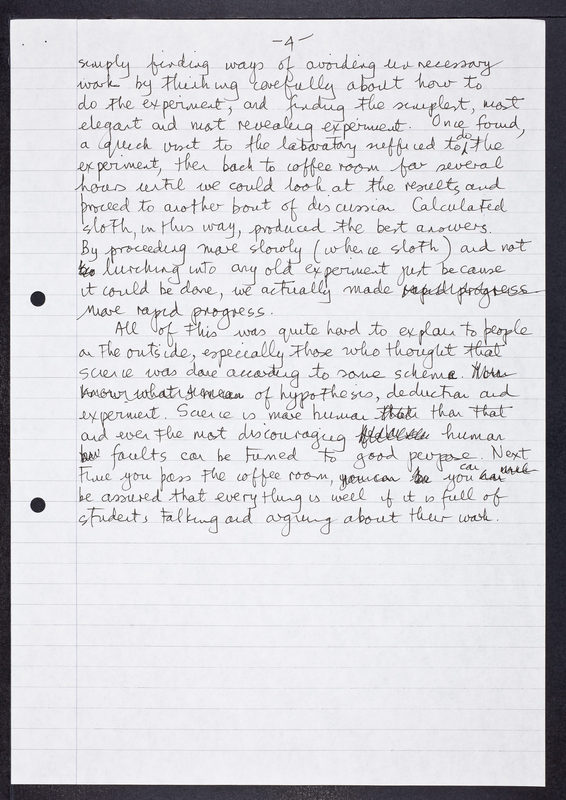 -4-
simply finding ways of avoiding unnecessary
work by thinking carefully about how to
do the experiment, and finding the simplest, most
elegant and most revealing experiment. Once found,
a quick visit to the laboratory sufficed to do the
experiment, then back to coffee room for several
hours until we could look at the results, and
proceed to another bout of discussion Calculated
sloth, in this way, produced the best answers.
By proceeding more slowly (whence sloth) and not
lurching into any old experiment just because
it could be done, we actually made rapid progress
more rapid progress.
All of this was quite hard to explain to people
on the outside, especially those who thought that
science was done according to some scheme
of hypothesis, deduction and
experiment. Science is more human that than that
and even the most discouraging human
faults can be turned to good purpose. Next
time you pass the coffee room, you can be you can
be assured that everything is well if it is full of
students talking and arguing about their work.